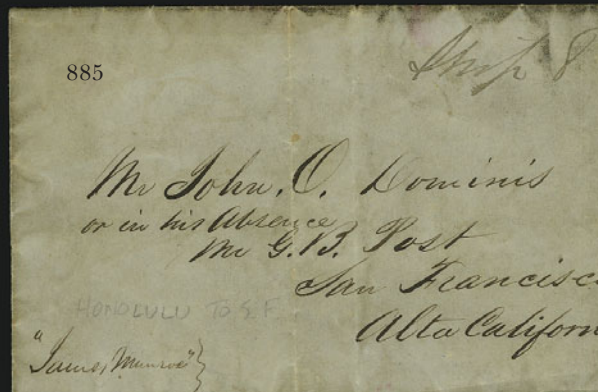 885
Ship 8
Mr John. O. Dominis
or in his Absence
Mr G. B. Post
San Francisc
Alta Californ
HONOLULU TO S. F.
"James, Munroe"}